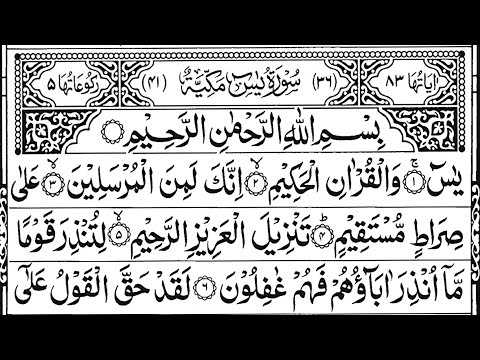 اٰیاتھا ۸۳ (۳۶) سُوۡرَۃُ یٰسٓ مَکِّیَّۃٌ (۴۱) رکوعاتھا ۵
بِسۡمِ اللهِ الرَّحۡمٰنِ الرَّحِيۡمِ
يٰسٓ ۚ‏ ۝۱ وَالۡقُرۡاٰنِ الۡحَكِيۡمِ ۙ‏ ۝۲ اِنَّكَ لَمِنَ الۡمُرۡسَلِيۡنَ ۙ‏ ۝۳ عَلٰى
صِرَاطٍ مُّسۡتَقِيۡمٍؕ‏ ۝۴ تَنۡزِيۡلَ الۡعَزِيۡزِ الرَّحِيۡمِ ۙ‏ ۝۵ لِتُنۡذِرَ قَوۡمًا
مَّاۤ اُنۡذِرَ اٰبَآؤُهُمۡ فَهُمۡ غٰفِلُوۡنَ‏ ۝۶ لَقَدۡ حَقَّ الۡقَوۡلُ عَلٰٓى